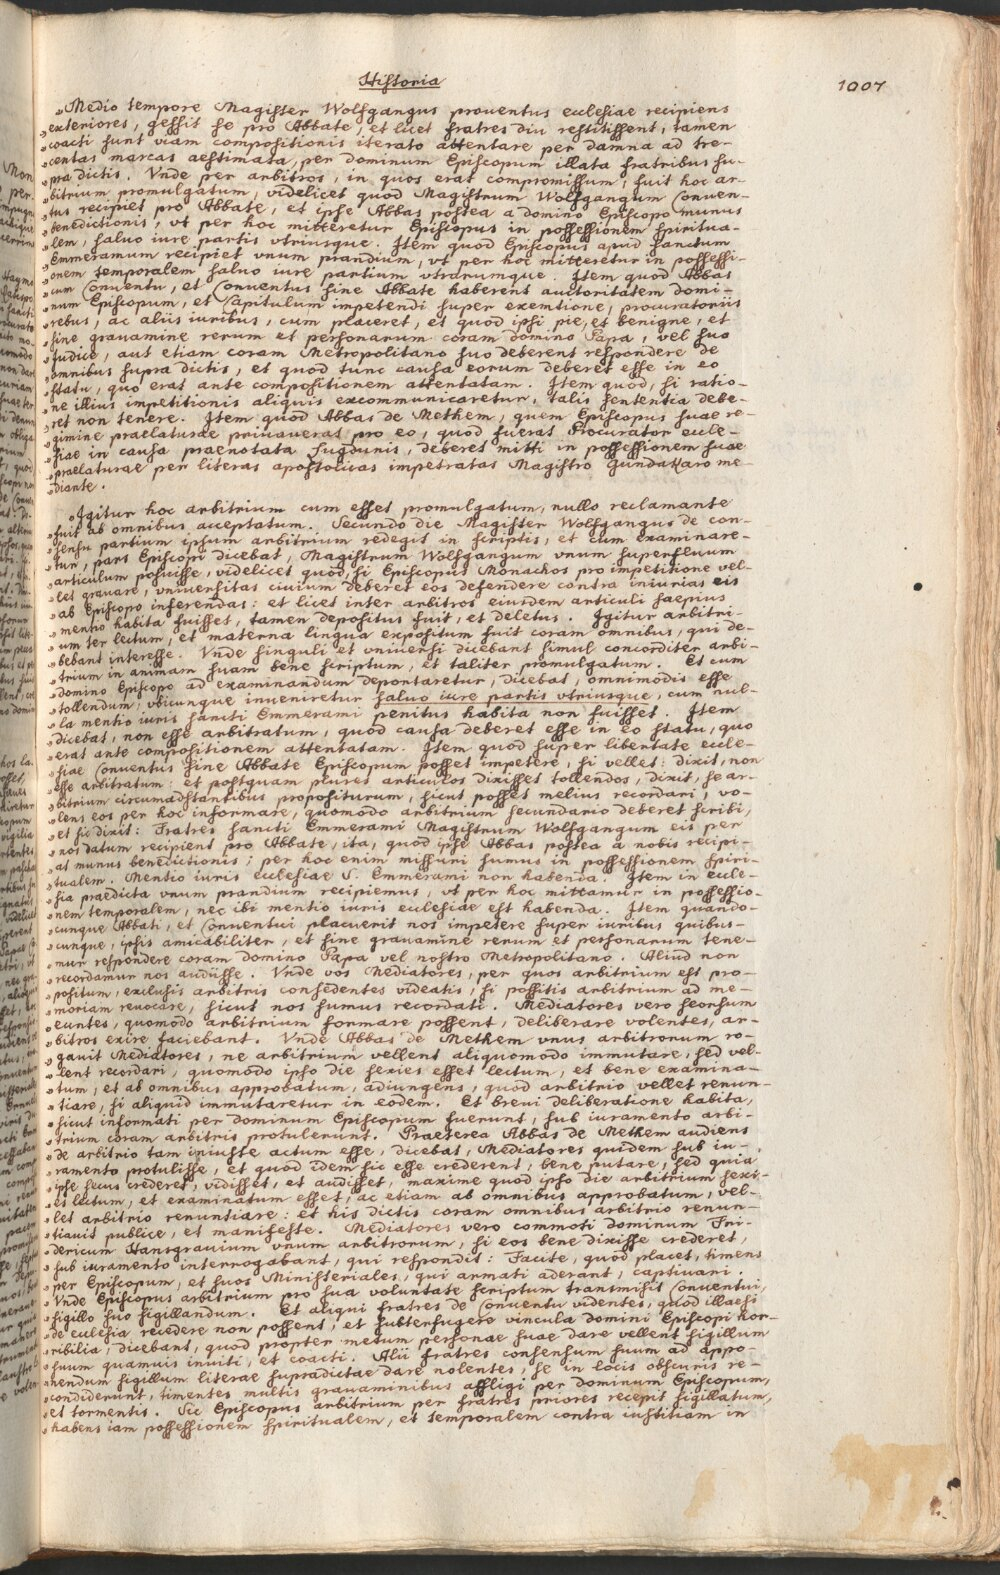 Historia
1007
„Medio tempore Magister Wolfgangus prouentus ecclesiae recipiens
„exteriores, gessit se pro Abbate, et licet fratres diu restitissent, tamen
„coacti sunt viam compositionis iterato attentare per damna ad tre-
„centas marcas aestimata, per dominum Episcopum illata fratribus su-
„pra dictis. Vnde per arbitros, in quos erat compromissum, fuit hoc ar-
„bitrium promulgatum, videlicet quod Magistrum Wolfgangum Conuen-
„tus recipiet pro Abbate, et ipse Abbas postea a domino Episcopo munus
„benedictionis, vt per hoc mitteretur Episcopus in possessionem spiritua-
„lem, saluo iure partis vtriusque. Item quod Episcopus apud sanctum
„Emmeramum recipiet vnum prandium, vt per hoc mitteretur in possessi-
„onem temporalem saluo iure partium vtrarumque. Item quod Abbas
„cum Conuentu, et Conuentus sine Abbate haberent auctoritatem domi-
„num Episcopum, et Capitulum impetendi super exemtione, procuratoriis
„rebus, ac aliis iuribus, cum placeret, et quod ipsi pie, et benigne, et
„sine grauamine rerum et personarum coram domino Papa, vel suo
„Judice, aut etiam coram Metropolitano suo deberent respondere de
„omnibus supra dictis, et quod tunc causa eorum deberet esse in eo
„statu, quo erat ante compositionem attentatam. Item quod, si ratio-
„ne illius impetitionis aliquis excommunicaretur, talis sententia debe-
„ret non tenere. Item quod Abbas de Methem, quem Episcopus suae re-
„gimine praelaturae priuauerat pro eo, quod fuerat Procurator eccle-
„siae in causa praenotata Lugdunis, deberet mitti in possessionem suae
„praelaturae per literas apostolicas impetratas Magistro Gundakaro me-
„diante.
„Igitur hoc arbitrium cum esset promulgatum, nullo reclamante
„fuit ab omnibus acceptatum. Secundo die Magister Wolfgangus de con-
„sensu partium ipsum arbitrium redegit in scriptis, et cum examinare-
„tur, pars Episcopi dicebat, Magistrum Wolfgangum vnum superfluum
„articulum posuisse, videlicet quod, si Episcopus Monachos pro impetitione vel-
„let grauare, vniuersitas ciuium deberet eos defendere contra iniurias eis
„ab Episcopo inferendas: et licet inter arbitros eiusdem articuli saepius
„mentio habita fuisset, tamen depositus fuit, et deletus. Igitur arbitri-
„um ter lectum, et materna lingua expositum fuit coram omnibus, qui de-
„bebant interesse. Vnde singuli et vniuersi dicebant simul concorditer arbi-
„trium in animam suam bene scriptum, et taliter promulgatum. Et cum
„domino Episcopo ad examinandum deportaretur, dicebat, omnimodis esse
„tollendum, vbicunque inueniretur saluo iure partis vtriusque, cum nul-
„la mentio iuris sancti Emmerami penitus habita non fuisset. Item
„dicebat, non esse arbitratum, quod causa deberet esse in eo statu, quo
„erat ante compositionem attentatam. Item quod super libertate eccle-
„siae Conuentus sine Abbate Episcopum posset impetere, si vellet: dixit, non
„esse arbitratum: et postquam plures articulos dixisset tollendos, dixit, se ar-
„bitrium circumadstantibus propositurum, sicut posset melius recordari, vo-
„lens eos per hoc informare, quomodo arbitrium secundario deberet scribi,
„et sic dixit: Fratres sancti Emmerami Magistrum Wolfgangum eis per
„nos datum recipient pro Abbate, ita, quod ipse Abbas postea a nobis recipi-
„at munus benedictionis; per hoc enim missuri sumus in possessionem spiri-
„tualem. Mentio iuris ecclesiae S. Emmerami non habenda. Item in eccle-
„sia praedicta vnum prandium recipiemus, vt per hoc mittamur in possessio-
„nem temporalem, nec ibi mentio iuris ecclesiae est habenda. Item quando-
„cunque Abbati, et Conuentui placuerit nos impetere super iuribus quibus-
„cunque, ipsis amicabiliter, et sine grauamine rerum et personarum tene-
„mur respondere coram domino Papa vel nostro Metropolitano. Aliud non
„recordamur nos audisse. Vnde vos Mediatores, per quos arbitrium est pro-
„positum, exclusis arbitris consedentes videatis, si possitis arbitrium ad me-
„moriam reuocare, sicut nos sumus recordati. Mediatores vero seorsum
„euntes, quomodo arbitrium formare possent, deliberare volentes, ar-
„bitros exire faciebant. Vnde Abbas de Methem vnus arbitrorum ro-
„gauit Mediatores, ne arbitrium vellent aliquomodo immutare, sed vel-
„lent recordari, quomodo ipso die sexies esset lectum, et bene examina-
„tum, et ab omnibus approbatum, adiungens, quod arbitrio vellet renun-
„tiare, si aliquid immutaretur in eodem. Et breui deliberatione habita,
„sicut informati per dominum Episcopum fuerunt, sub iuramento arbi-
„trium coram arbitris protulerunt. Praeterea Abbas de Methem audiens
„de arbitrio tam iniuste actum esse, dicebat, Mediatores quidem sub iu-
„ramento protulisse, et quod idem sic esse crederent, bene putare, sed quia
„ipse secus crederet, vidisset, et audisset, maxime quod ipso die arbitrium sexi-
„es lectum, et examinatum esset, ac etiam ab omnibus approbatum, vel-
„let arbitrio renuntiare: et his dictis coram omnibus arbitrio renun-
„tiauit publice, et manifeste. Mediatores vero commoti dominum Fri-
„dericum Hansgrauium vnum arbitrorum, si eos bene dixisse crederet,
„sub iuramento interrogabant, qui respondit: Facite, quod placet, timens
„per Episcopum, et suos Ministeriales, qui armati aderant, captiuari.
„Vnde Episcopus arbitrium pro sua voluntate scriptum transmisit Conuentui,
„sigillo suo sigillandum. Et aliqui fratres de Conuentu videntes, quod illaesi
„de ecclesia recedere non possent, et subterfugere vincula domini Episcopi hor-
„ribilia, dicebant, quod propter metum personae suae dare vellent sigillum
„suum quamuis inuiti, et coacti. Alii fratres consensum suum ad appo-
„nendum sigillum literae supradictae dare nolentes, se in locis obscuris re-
„condiderunt, timentes multis grauaminibus affligi per dominum Episcopum,
„et tormentis. Sic Episcopus arbitrium per fratres priores recepit sigillatum,
„habens iam possessionem spiritualem, et temporalem contra iustitiam in